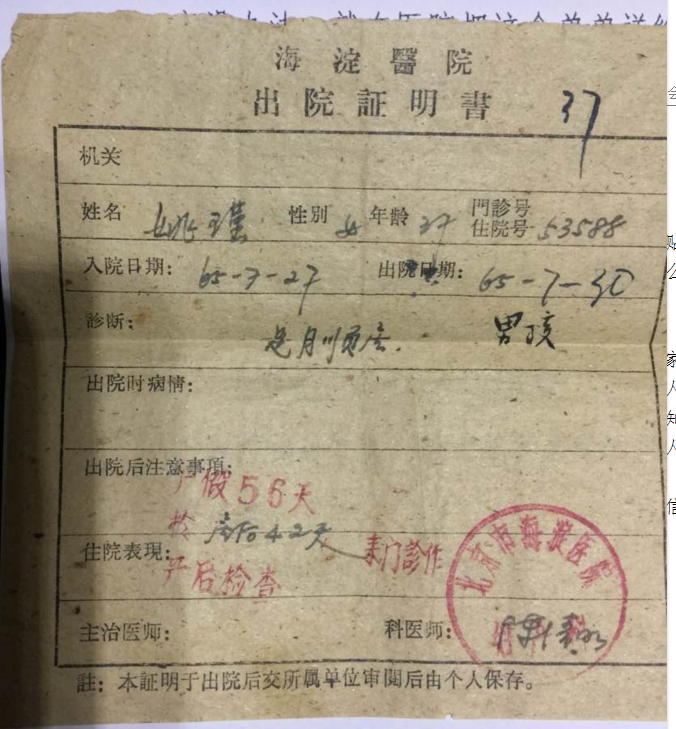 海淀醫院
出院証明書 37
机关
姓名 姚瑾 性別 女 年龄 27 門診号 住院号 53588
入院日期： 65-7-27 出院日期： 65-7-30
診断： 足月顺产. 男孩
出院时病情：
出院后注意事項：
产假56天
於产后42天来门診作
住院表現：
产后检查
北京市海淀医院
主治医师： 科医师：
註：本証明于出院后交所属单位审閱后由个人保存。